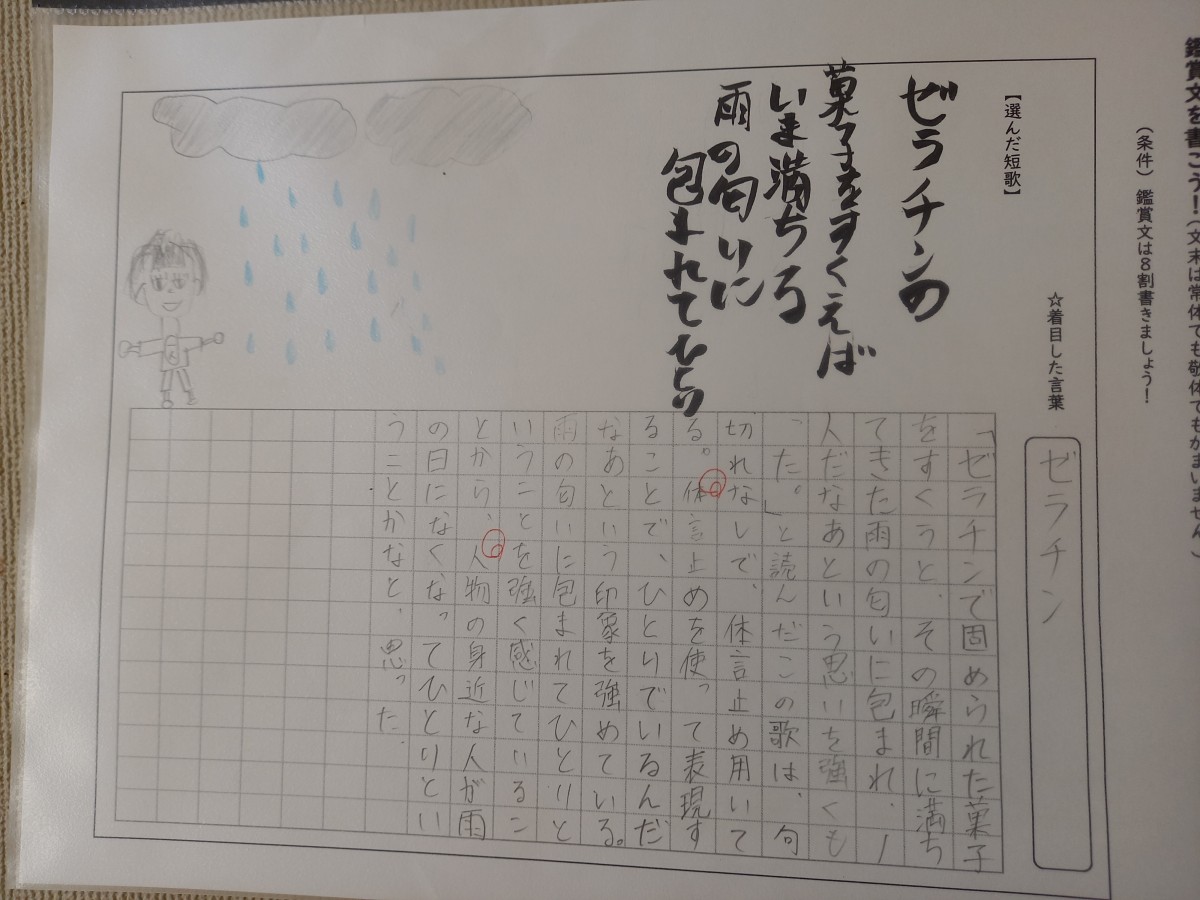 鑑賞文を書こう!(文末は常体でも敬体でもかまいません。)
(条件) 鑑賞文は8割書きましょう!
☆着目した言葉
ゼラチン
【選んだ短歌】
ゼラチンの
菓子をすくえば
いま満ちる
雨の匂いに
包まれてひとり
「ゼラチンで固められた菓子
をすくうと、その瞬間に満ち
てきた雨の匂いに包まれ、1
人だなあという思いを強くも
った。」と読んだこの歌は、句
切れなしで、体言止め用いて
る。体言止めを使って表現す
ることで、ひとりでいるんだ
なあという印象を強めている。
雨の匂いに包まれてひとりと
いうことを強く感じているこ
とから、人物の身近な人が雨
の日になくなってひとりとい
うことかなと、思った。